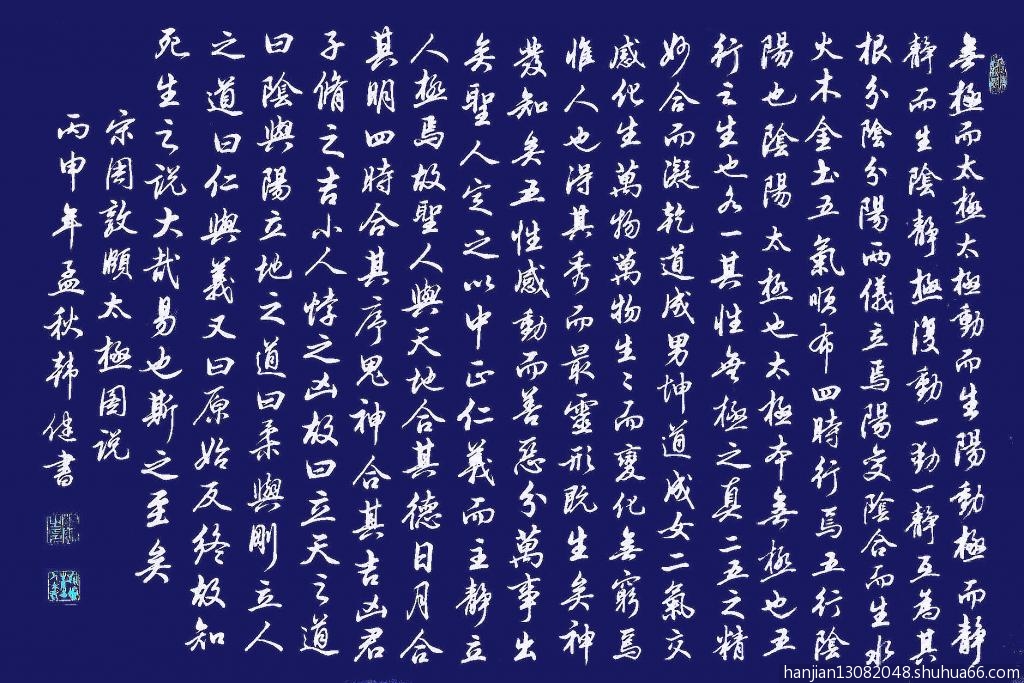 無極而太極太極動而生陽動極而靜
靜而生陰靜極復動一動一靜互為其
根分陰分陽兩儀立焉陽变陰合而生水
火木金土五氣順布四時行焉五行陰
陽也陰陽太極也太極本無極也五
行之生也各一其性無極之真二五之精
妙合而凝乾道成男坤道成女二氣交
感化生萬物萬物生々而變化無窮焉
惟人也得其秀而最靈形既生矣神
發知矣五性感動而善惡分萬事出
矣聖人定之以中正仁義而主靜立
人極焉故聖人與天地合其德日月合
其明四時合其序鬼神合其吉凶君
子脩之吉小人悖之凶故曰立天之道
曰陰與陽立地之道曰柔與剛立人
之道曰仁與義又曰原始反終故知
死生之説大哉易也斯之至矣
宋周敦頤太極图説
丙申年孟秋韩健書
hanjian13082048.shuhua66.com